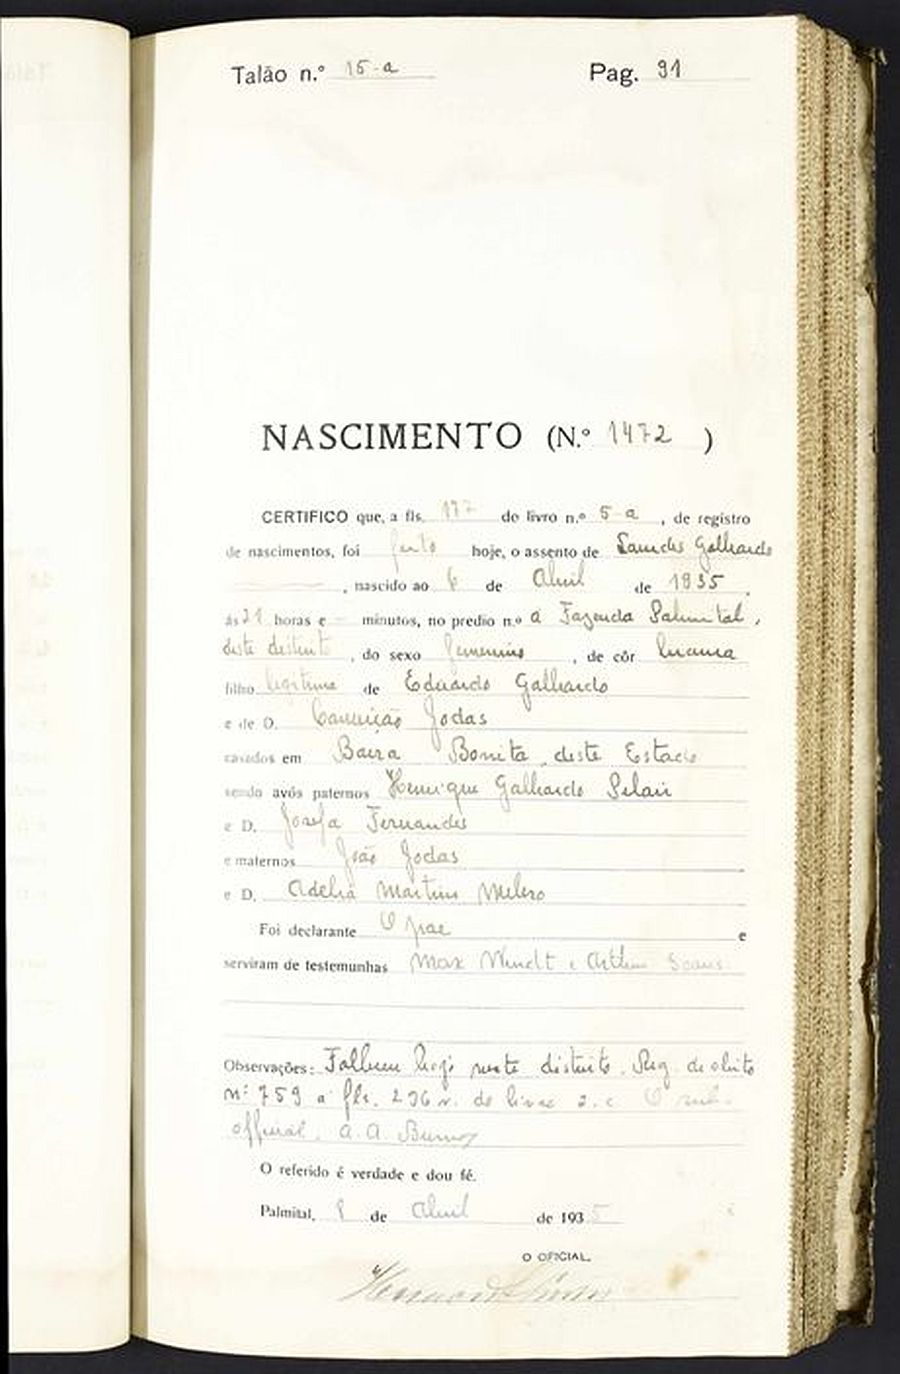 Talão n.º 15-a Pag. 91
NASCIMENTO (N.º 1472 )
CERTIFICO que, a fls. 177 do livro n.º 5-a , de registro
de nascimentos, foi feito hoje, o assento de Lourdes Galhardo
, nascido ao 6 de Abril de 1935 ,
ás 21 horas e — minutos, no predio n.º a Fazenda Palmital,
deste distrito , do sexo femenino , de côr branca
filho legitima de Eduardo Galhardo
e de D. Conceição Jodas
casados em Barra Bonita, deste Estado
sendo avós paternos Henrique Galhardo
e D. Josefa Fernandes
e maternos João Jodas
e D. Adelia Martins Melero
Foi declarante O pae e
serviram de testemunhas Max Wendt e Arthur
Observações: Falleceu hoje neste distrito. Reg. de obito
nº 759 a fls. 296 v. do livro 2.c. O sub.
official, A. A.
O referido é verdade e dou fé.
Palmital, 8 de Abril de 1935
O OFICIAL.